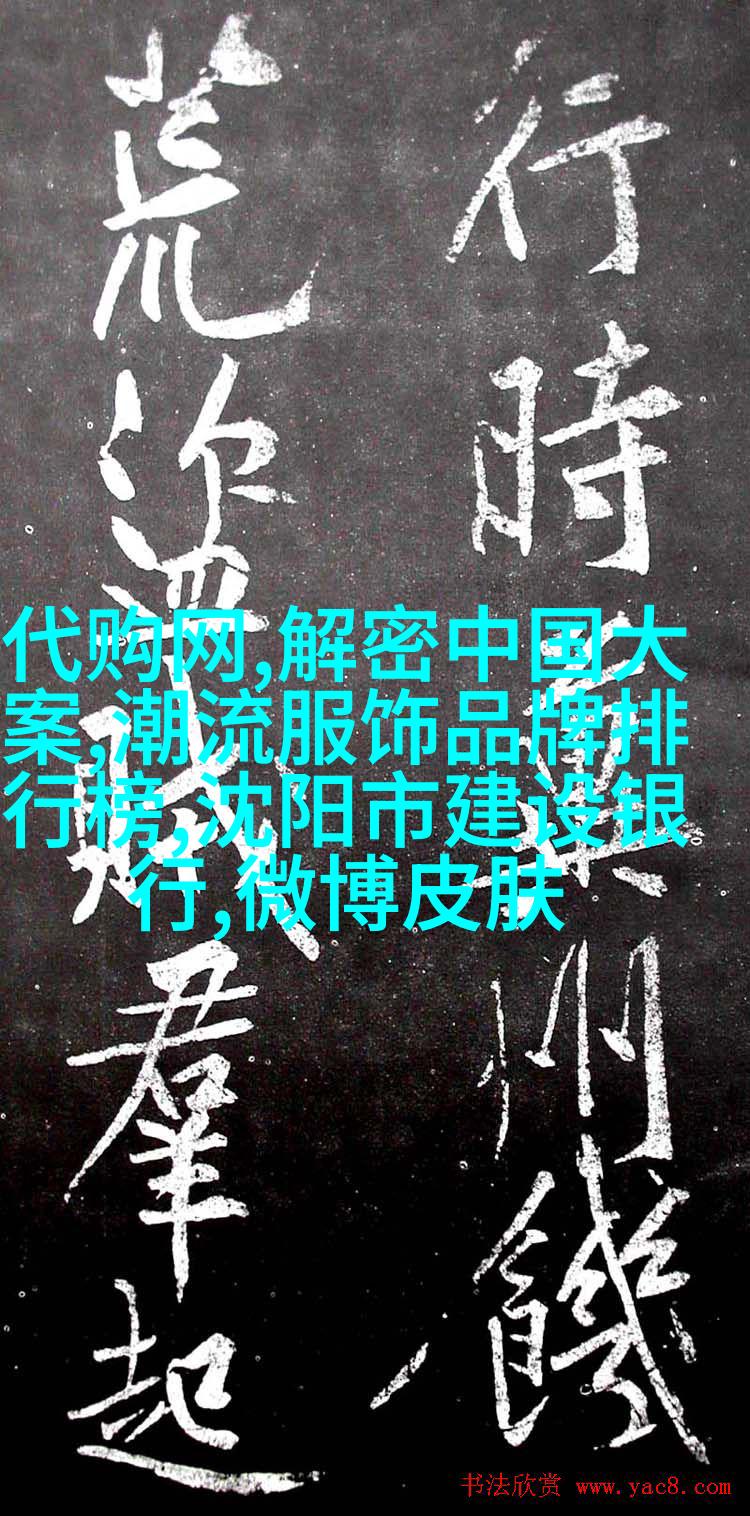 行時州饑
荒次賊羣起
代购网,解密中国大
案,潮流服饰品牌排
行榜,沈阳市建设银
行,微博皮肤
书法欣赏 www.yac8.com